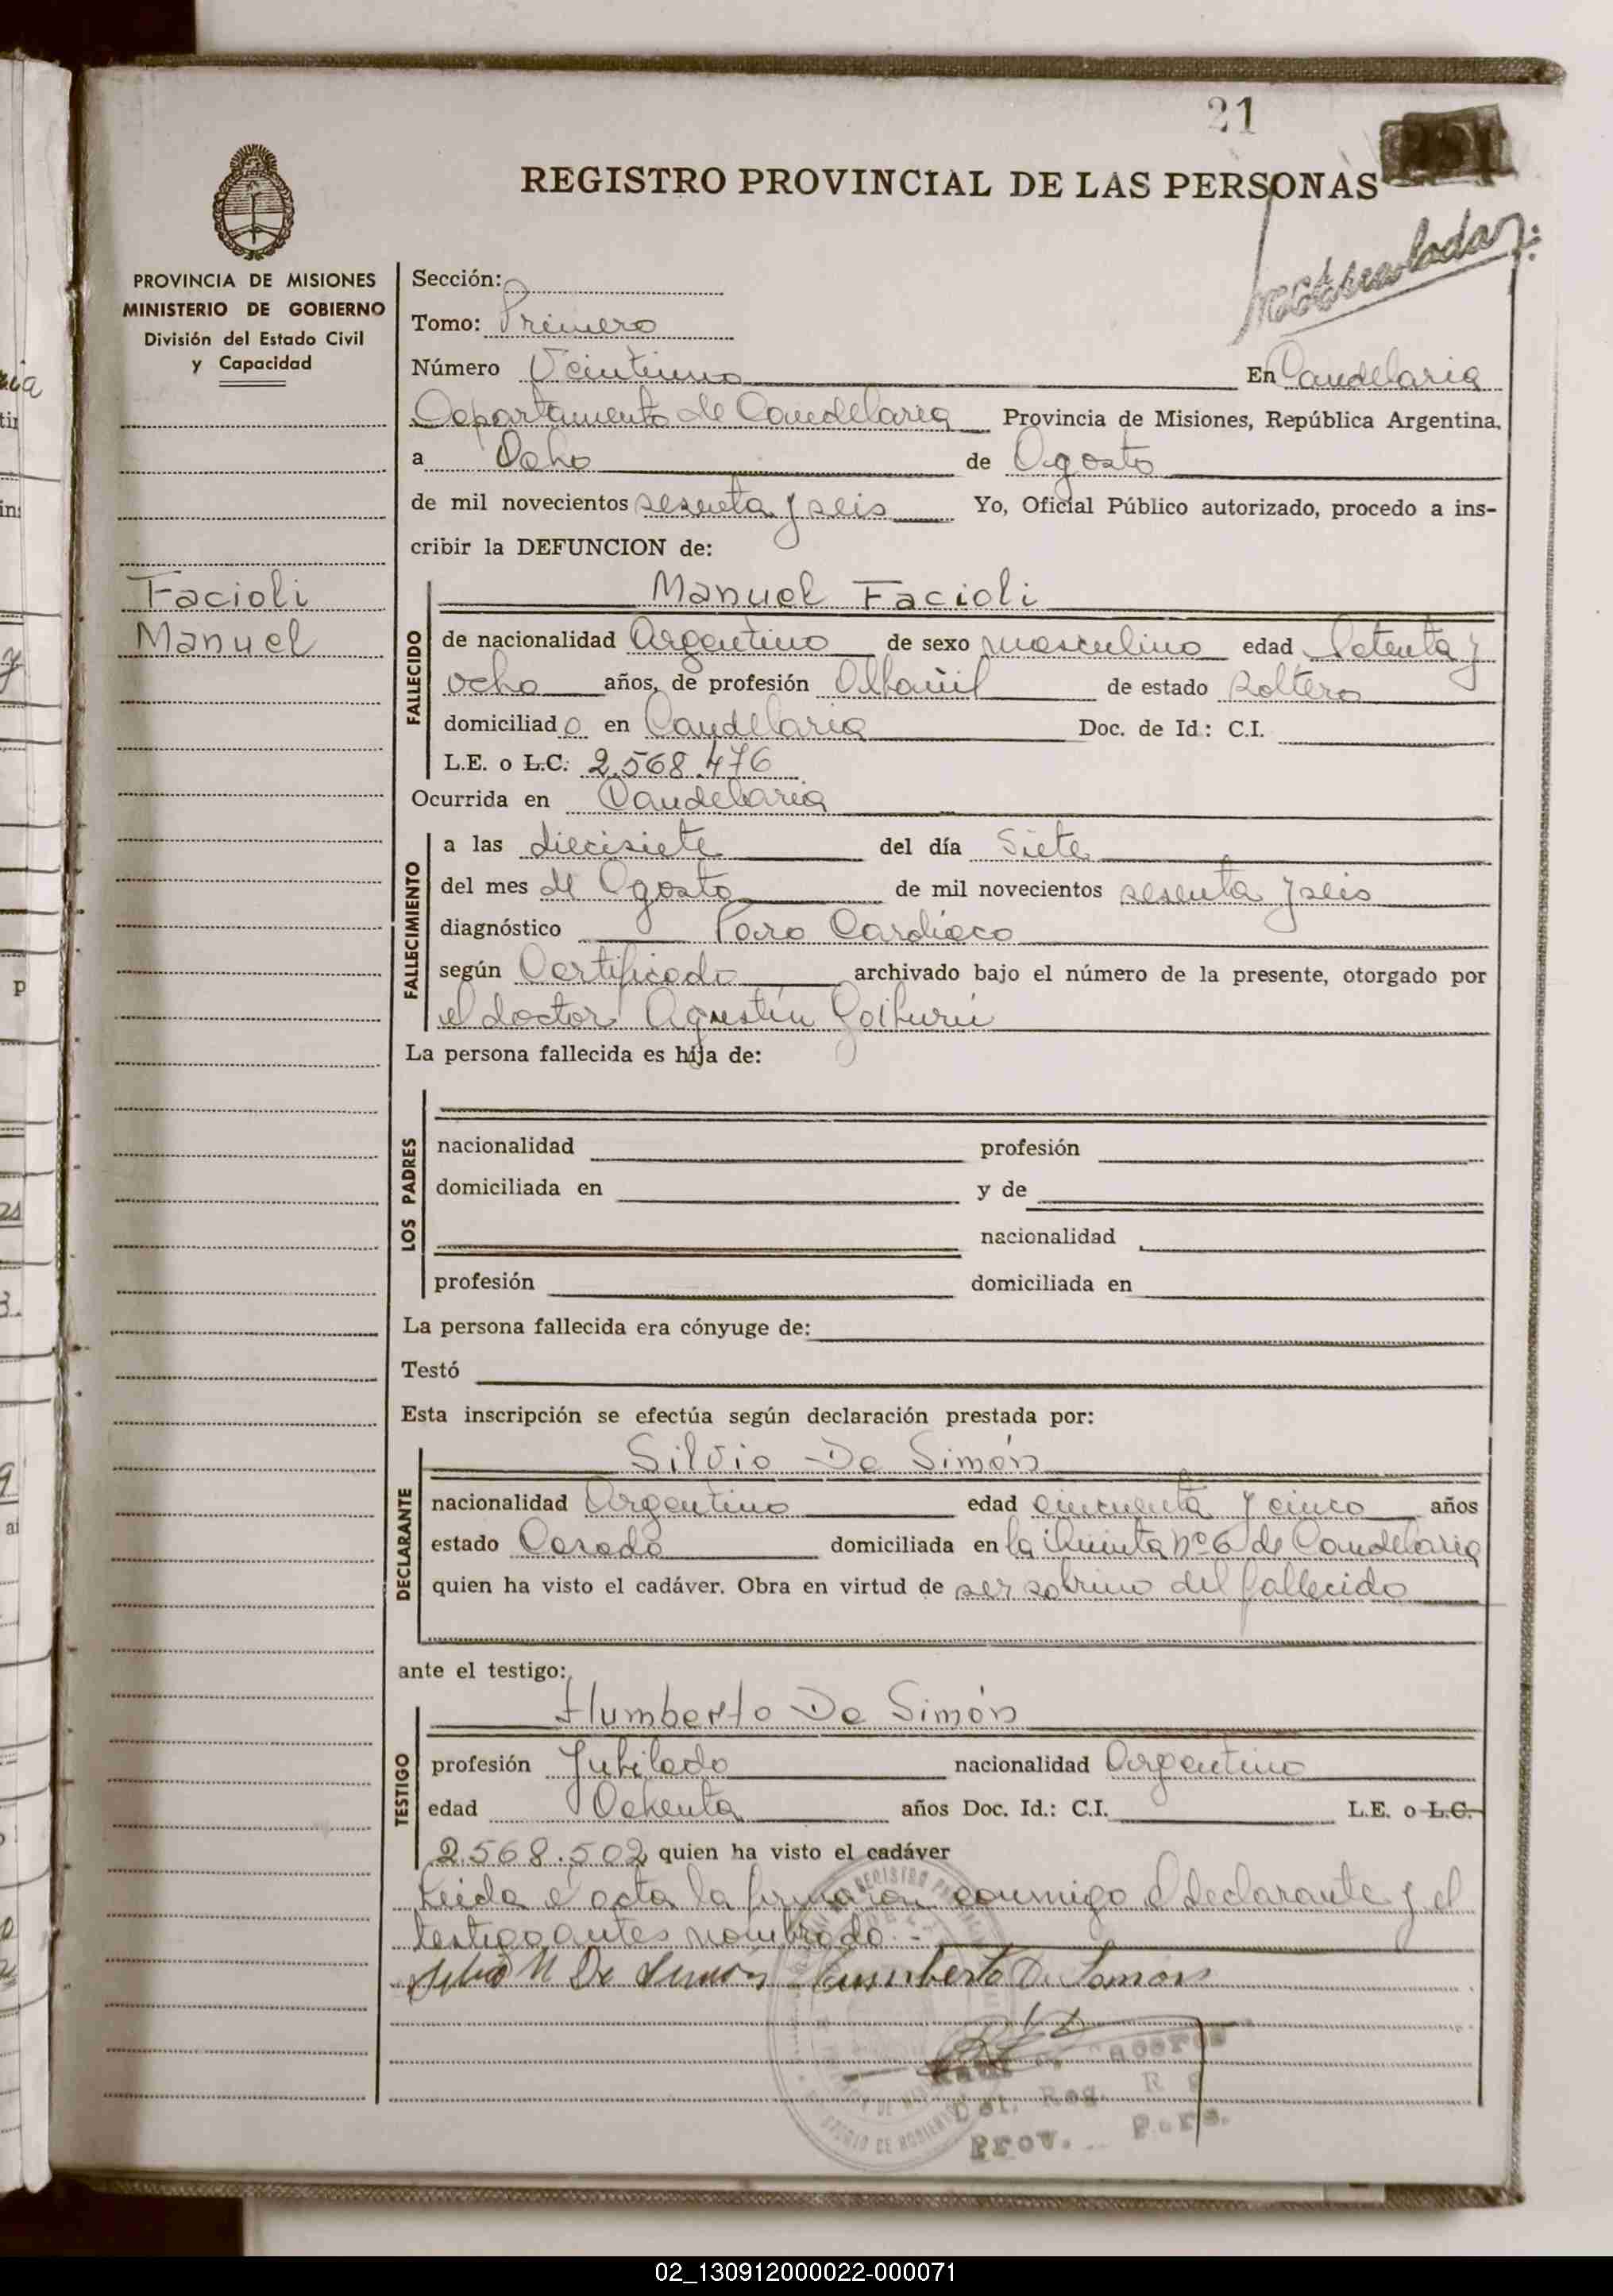 21
REGISTRO PROVINCIAL DE LAS PERSONAS
PROVINCIA DE MISIONES
MINISTERIO DE GOBIERNO
División del Estado Civil
y Capacidad
Sección:
Tomo: Primero
Número Veintiuno En Candelaria
Departamento de Candelaria Provincia de Misiones, República Argentina,
a Ocho de Agosto
de mil novecientos sesenta y seis Yo, Oficial Público autorizado, procedo a ins-
cribir la DEFUNCION de:
Facioli
Manuel
Manuel Facioli
FALLECIDO
de nacionalidad Argentino de sexo masculino edad Setenta y
ocho años, de profesión Albañil de estado Soltero
domiciliado en Candelaria Doc. de Id: C.I.
L.E. o L.C: 2.568.476
Ocurrida en Candelaria
FALLECIMIENTO
a las diecisiete del día Siete
del mes de Agosto de mil novecientos sesenta y seis
diagnóstico Paro Cardíaco
según Certificado archivado bajo el número de la presente, otorgado por
el doctor Agustín Goiburú
La persona fallecida es hija de:
LOS PADRES
nacionalidad profesión
domiciliada en y de
nacionalidad
profesión domiciliada en
La persona fallecida era cónyuge de:
Testó
Esta inscripción se efectúa según declaración prestada por:
Silvio De Simón
DECLARANTE
nacionalidad Argentino edad cincuenta y cinco años
estado Casado domiciliada en la Quinta nº 6 de Candelaria
quien ha visto el cadáver. Obra en virtud de ser sobrino del fallecido
ante el testigo:
Humberto De Simón
TESTIGO
profesión Jubilado nacionalidad Argentino
edad Ochenta años Doc. Id.: C.I. L.E. o L.C.
2.568.502 quien ha visto el cadáver
Leida el acta la firmaron conmigo el declarante y el
testigo antes nombrado.-
Silvio N De Simón Humberto De Simón
Del. Reg.
Prov. Pers.
02_130912000022-000071